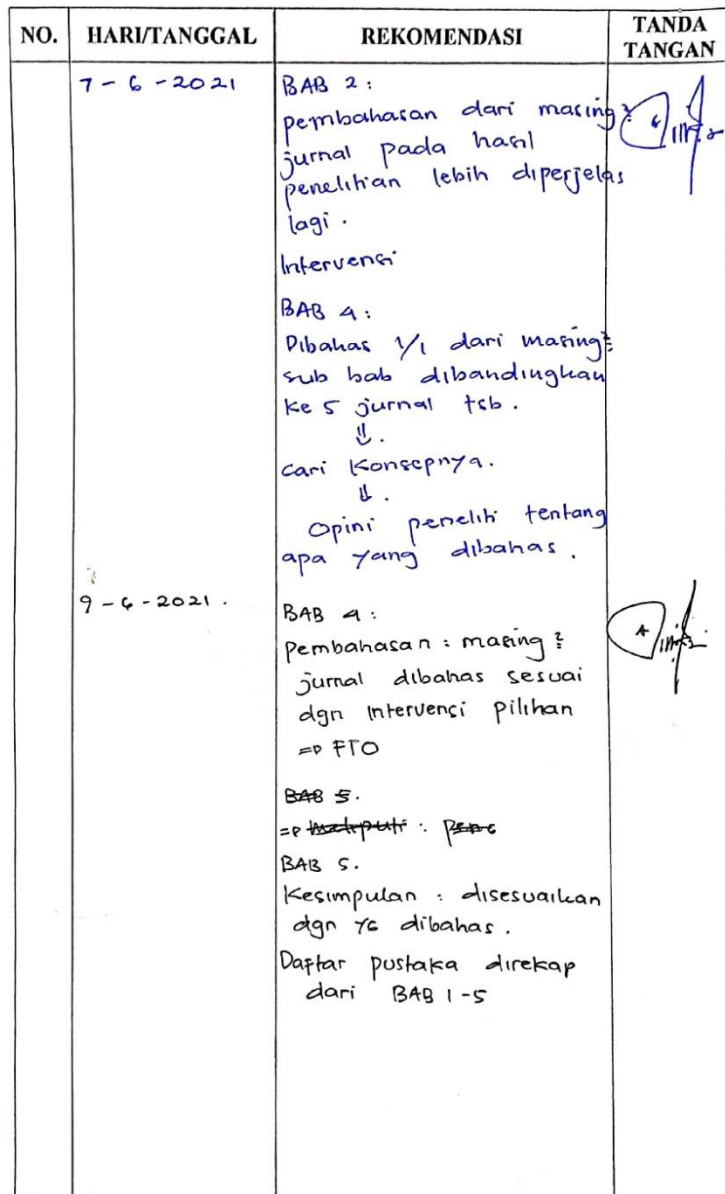 NO. HARI/TANGGAL REKOMENDASI TANDA TANGAN
7-6-2021 BAB 2:
pembahasan dari masing²
jurnal pada hasil
penelitian lebih diperjelas
lagi.
Intervensi
BAB 4:
Dibahas 1/1 dari masing²
sub bab dibandingkan
ke 5 jurnal tsb.
⇓.
cari Konsepnya.
⇓.
Opini peneliti tentang
apa yang dibahas.
9-6-2021. BAB 4:
pembahasan: masing²
jurnal dibahas sesuai
dgn intervensi pilihan
=> FTO
BAB 5.
=> meliputi: pen
BAB 5.
Kesimpulan: disesuaikan
dgn yg dibahas.
Daftar pustaka direkap
dari BAB 1-5